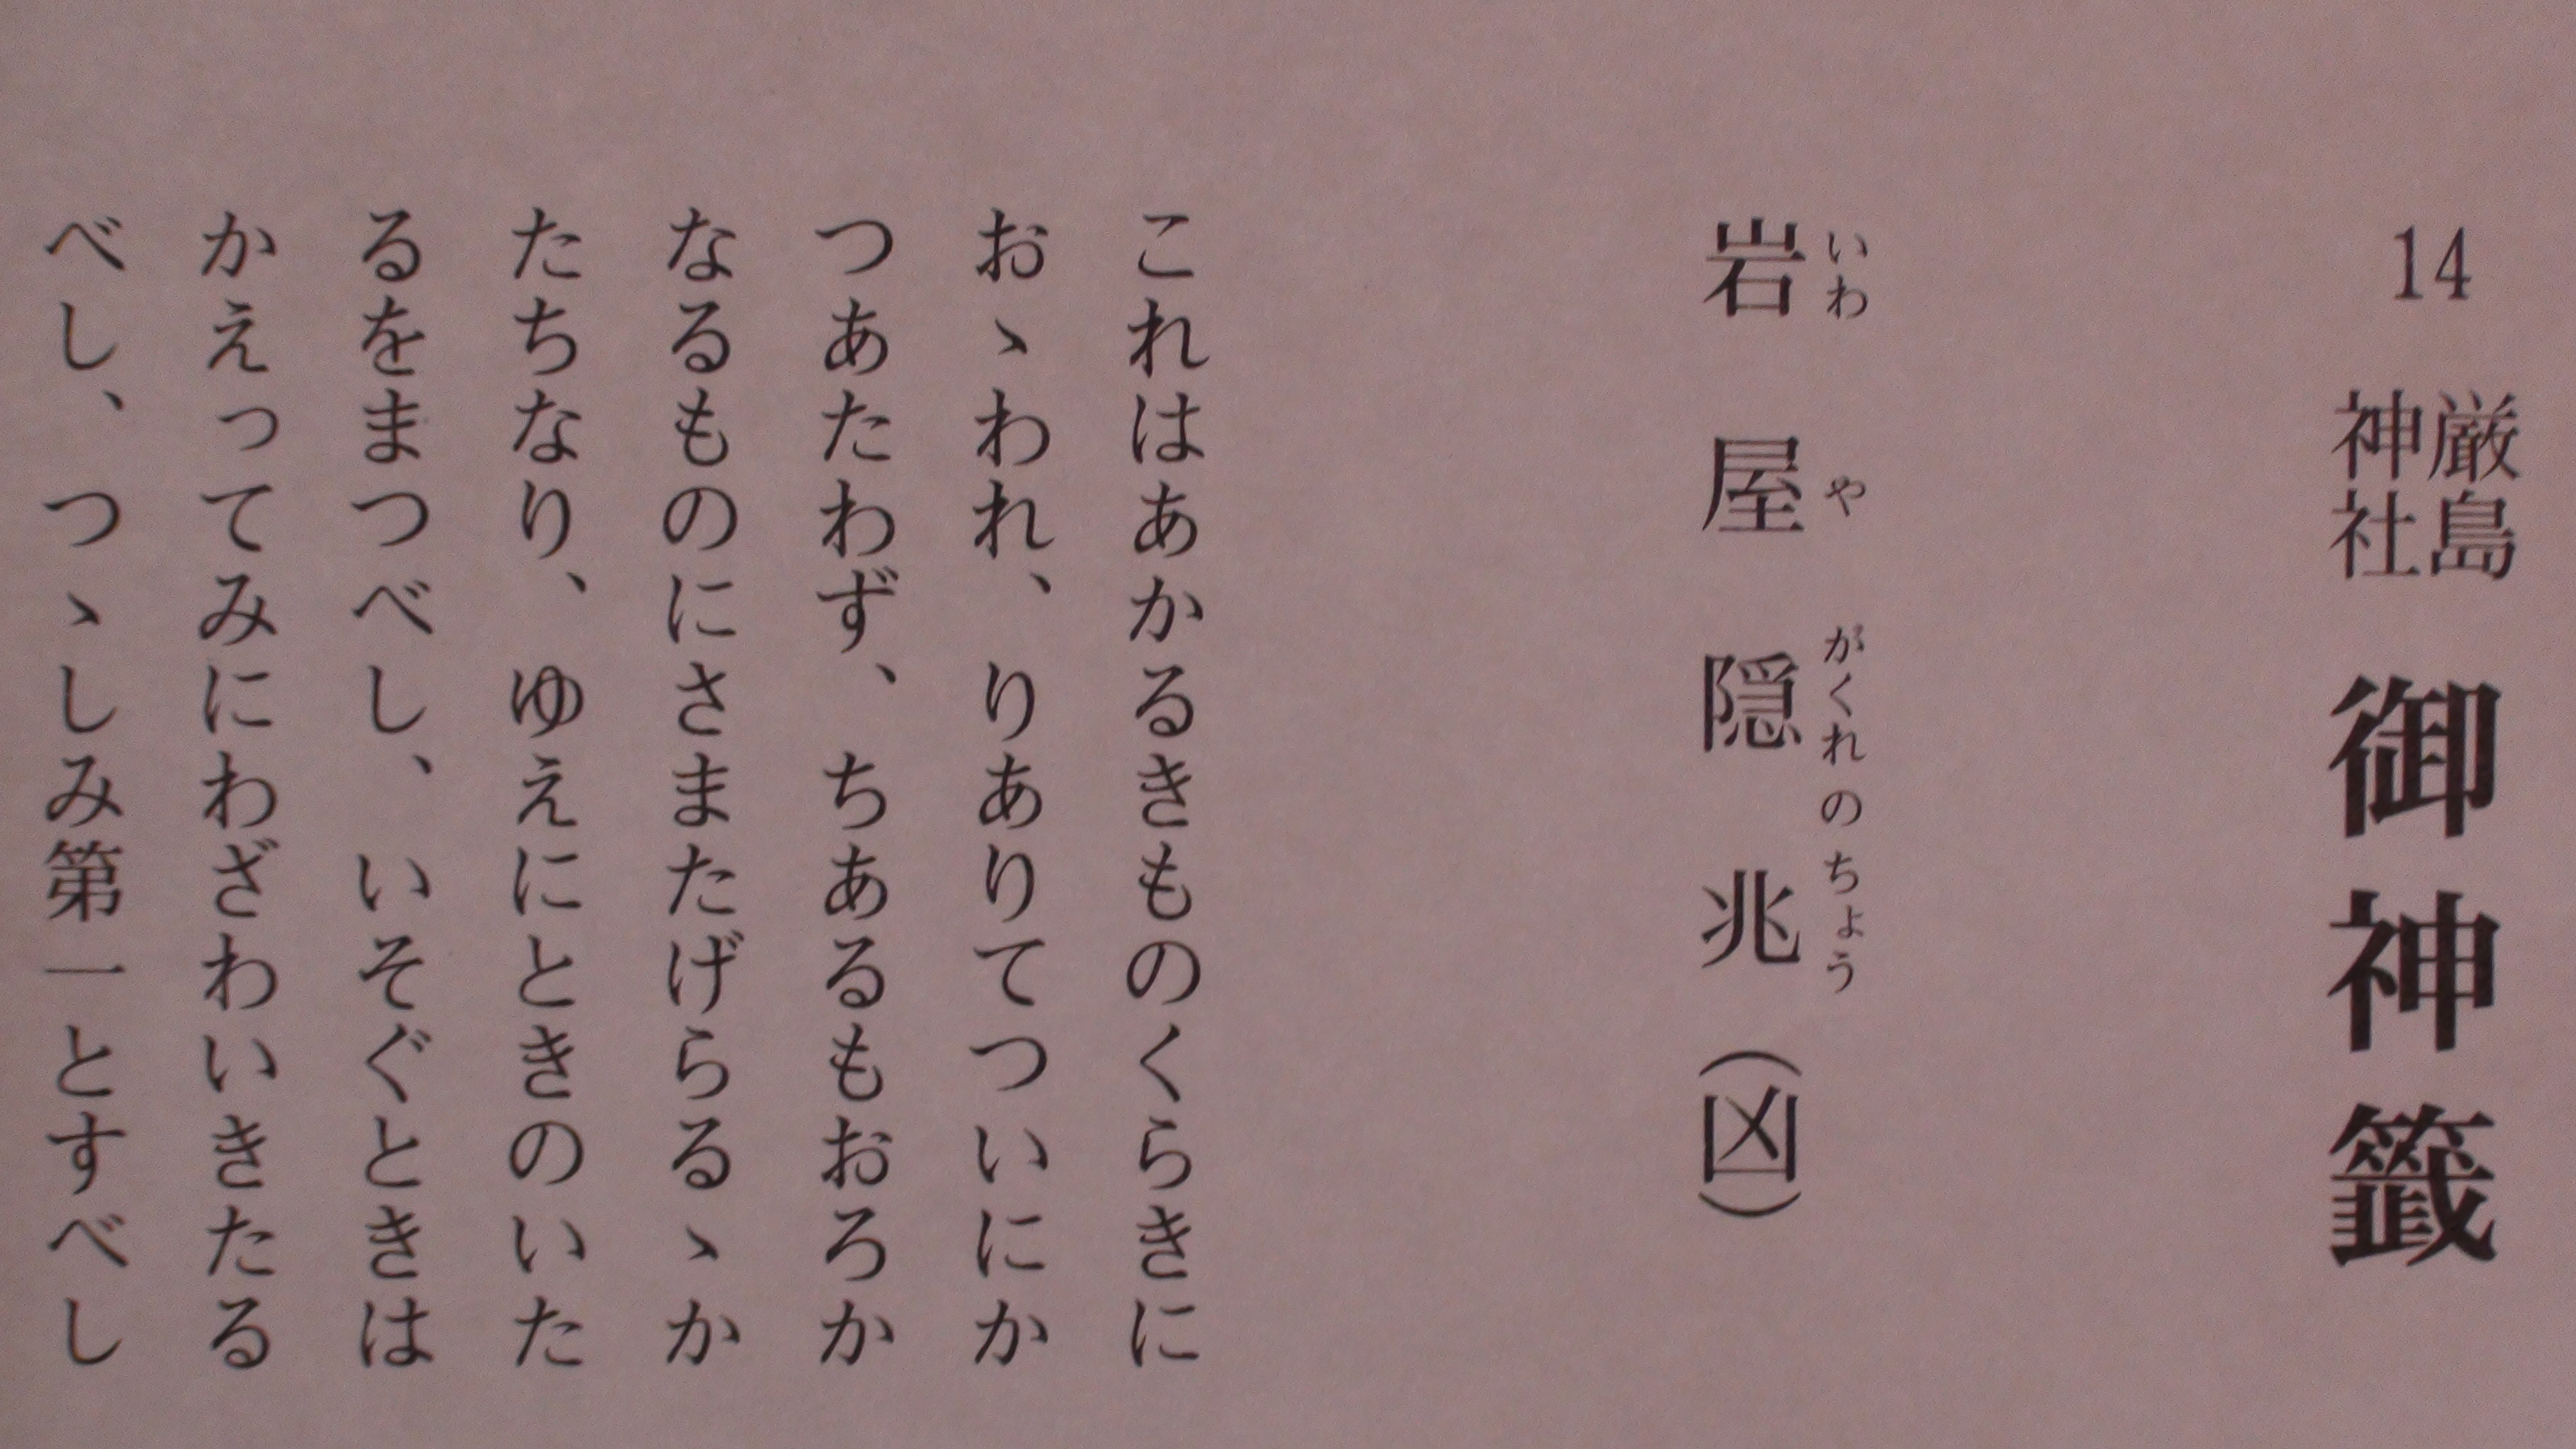 14 厳島神社 御神籤
いわ や がくれの ちょう
岩屋隠兆（凶）
これはあかるきものくらきに
おゝわれ、りありてついにか
つあたわず、ちあるもおろか
なるものにさまたげらるゝか
たちなり、ゆえにときのいた
るをまつべし、いそぐときは
かえってみにわざわいきたる
べし、つゝしみ第一とすべし